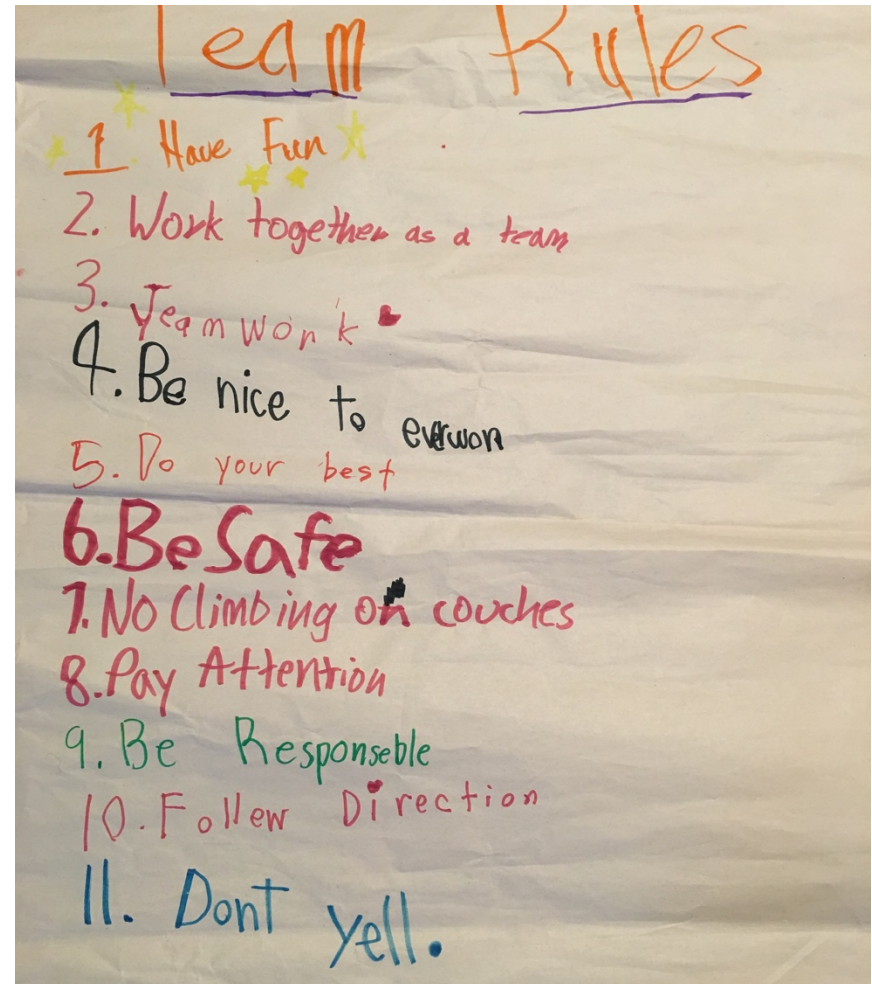 Team Rules
1. Have Fun
2. Work together as a team
3. Teamwork
4. Be nice to everwon
5. Do your best
6. Be Safe
7. No Climbing on couches
8. Pay Attention
9. Be Responseble
10. Follew Direction
11. Dont yell.